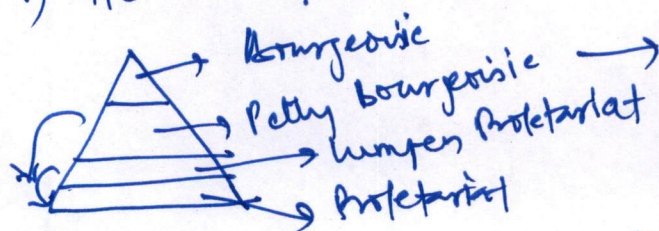 Bourgeoisie
Petty bourgeoisie
Lumpen Proletariat
Proletariat